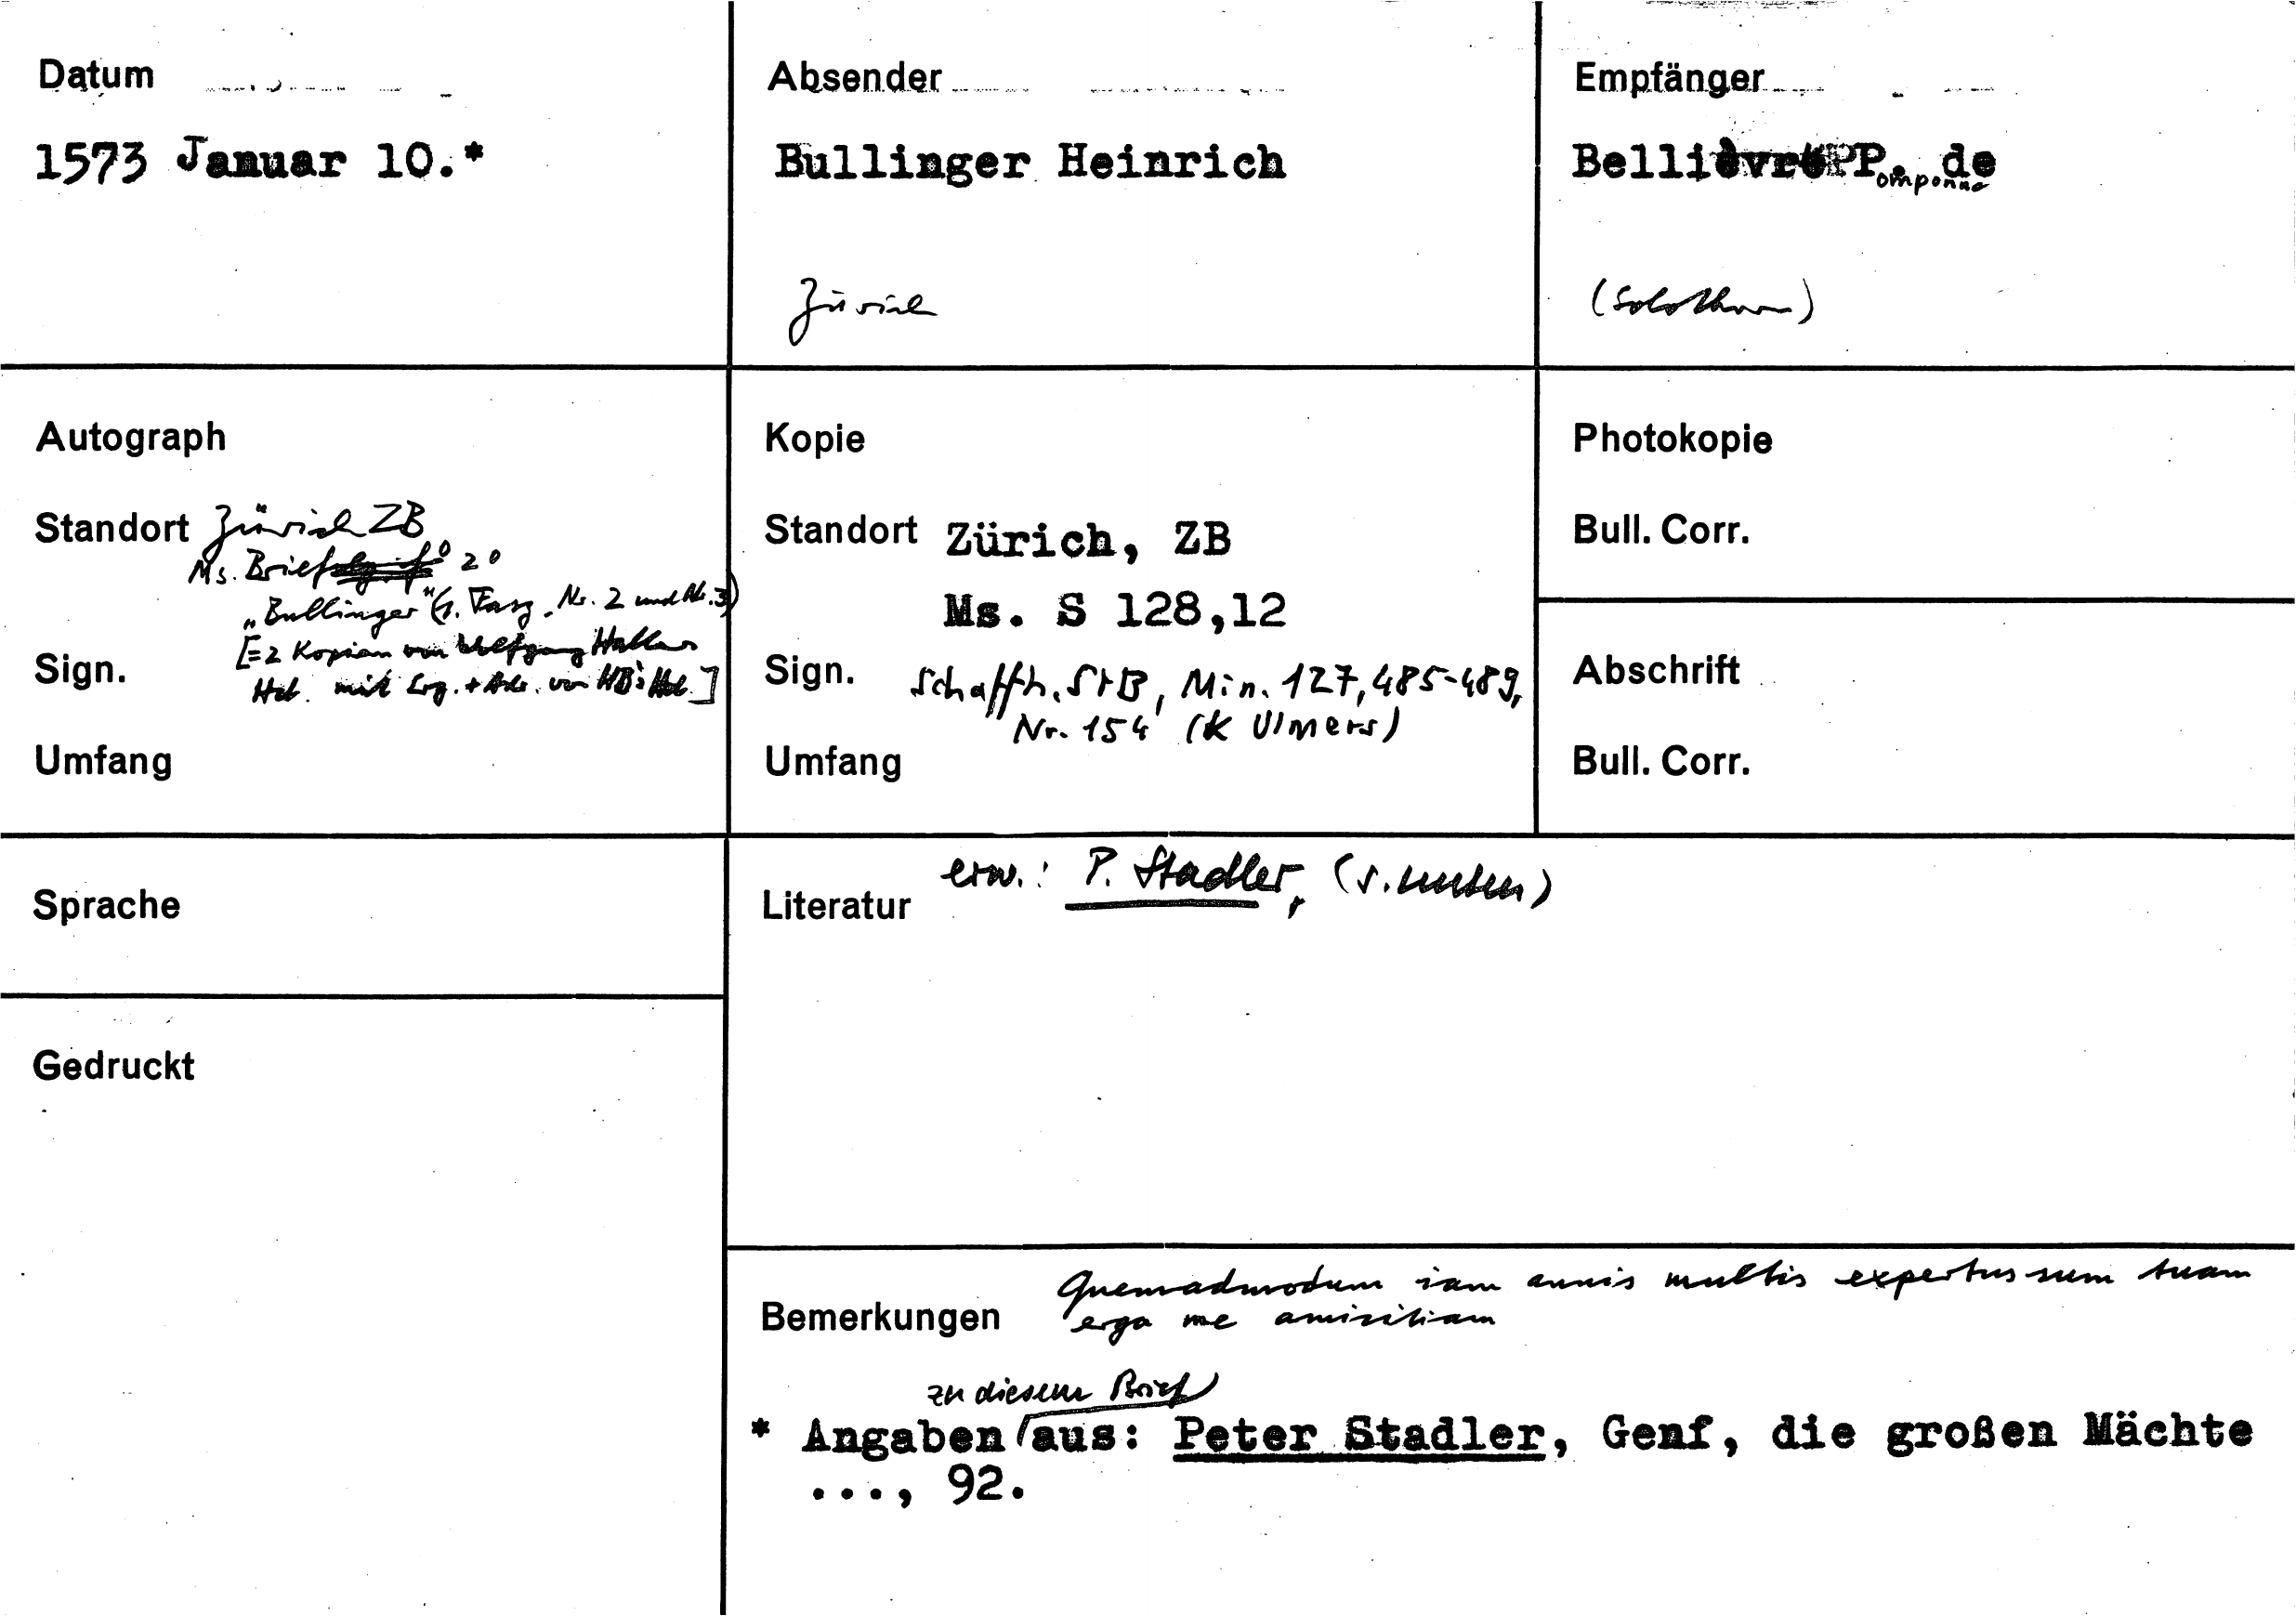 Datum
1573 Januar 10.*
Absender
Bullinger Heinrich
Zürich
Empfänger
Bellièvre P. de
omponne
(Solothurn)
Autograph
Standort Zürich ZB
Ms. Briefe 2°
"Bullinger" (1. Fasz. Nr. 2 und Nr. 3)
Sign. [=2 Kopien von Wolfgang Hallers
Hd. mit Erg. + Adr. von HB's Hd.]
Umfang
Kopie
Standort Zürich, ZB
Ms. S 128,12
Sign. Schaffh. StB, Min. 127, 485-489,
Nr. 154 (K Ulmers)
Umfang
Photokopie
Bull. Corr.
Abschrift
Bull. Corr.
Sprache
Gedruckt
Literatur erw.: P. Stadler, (s. unten)
Bemerkungen Quemadmodum iam annis multis expertus sum tuam
erga me amicitiam
zu diesem Brief
* Angaben aus: Peter Stadler, Genf, die großen Mächte
..., 92.